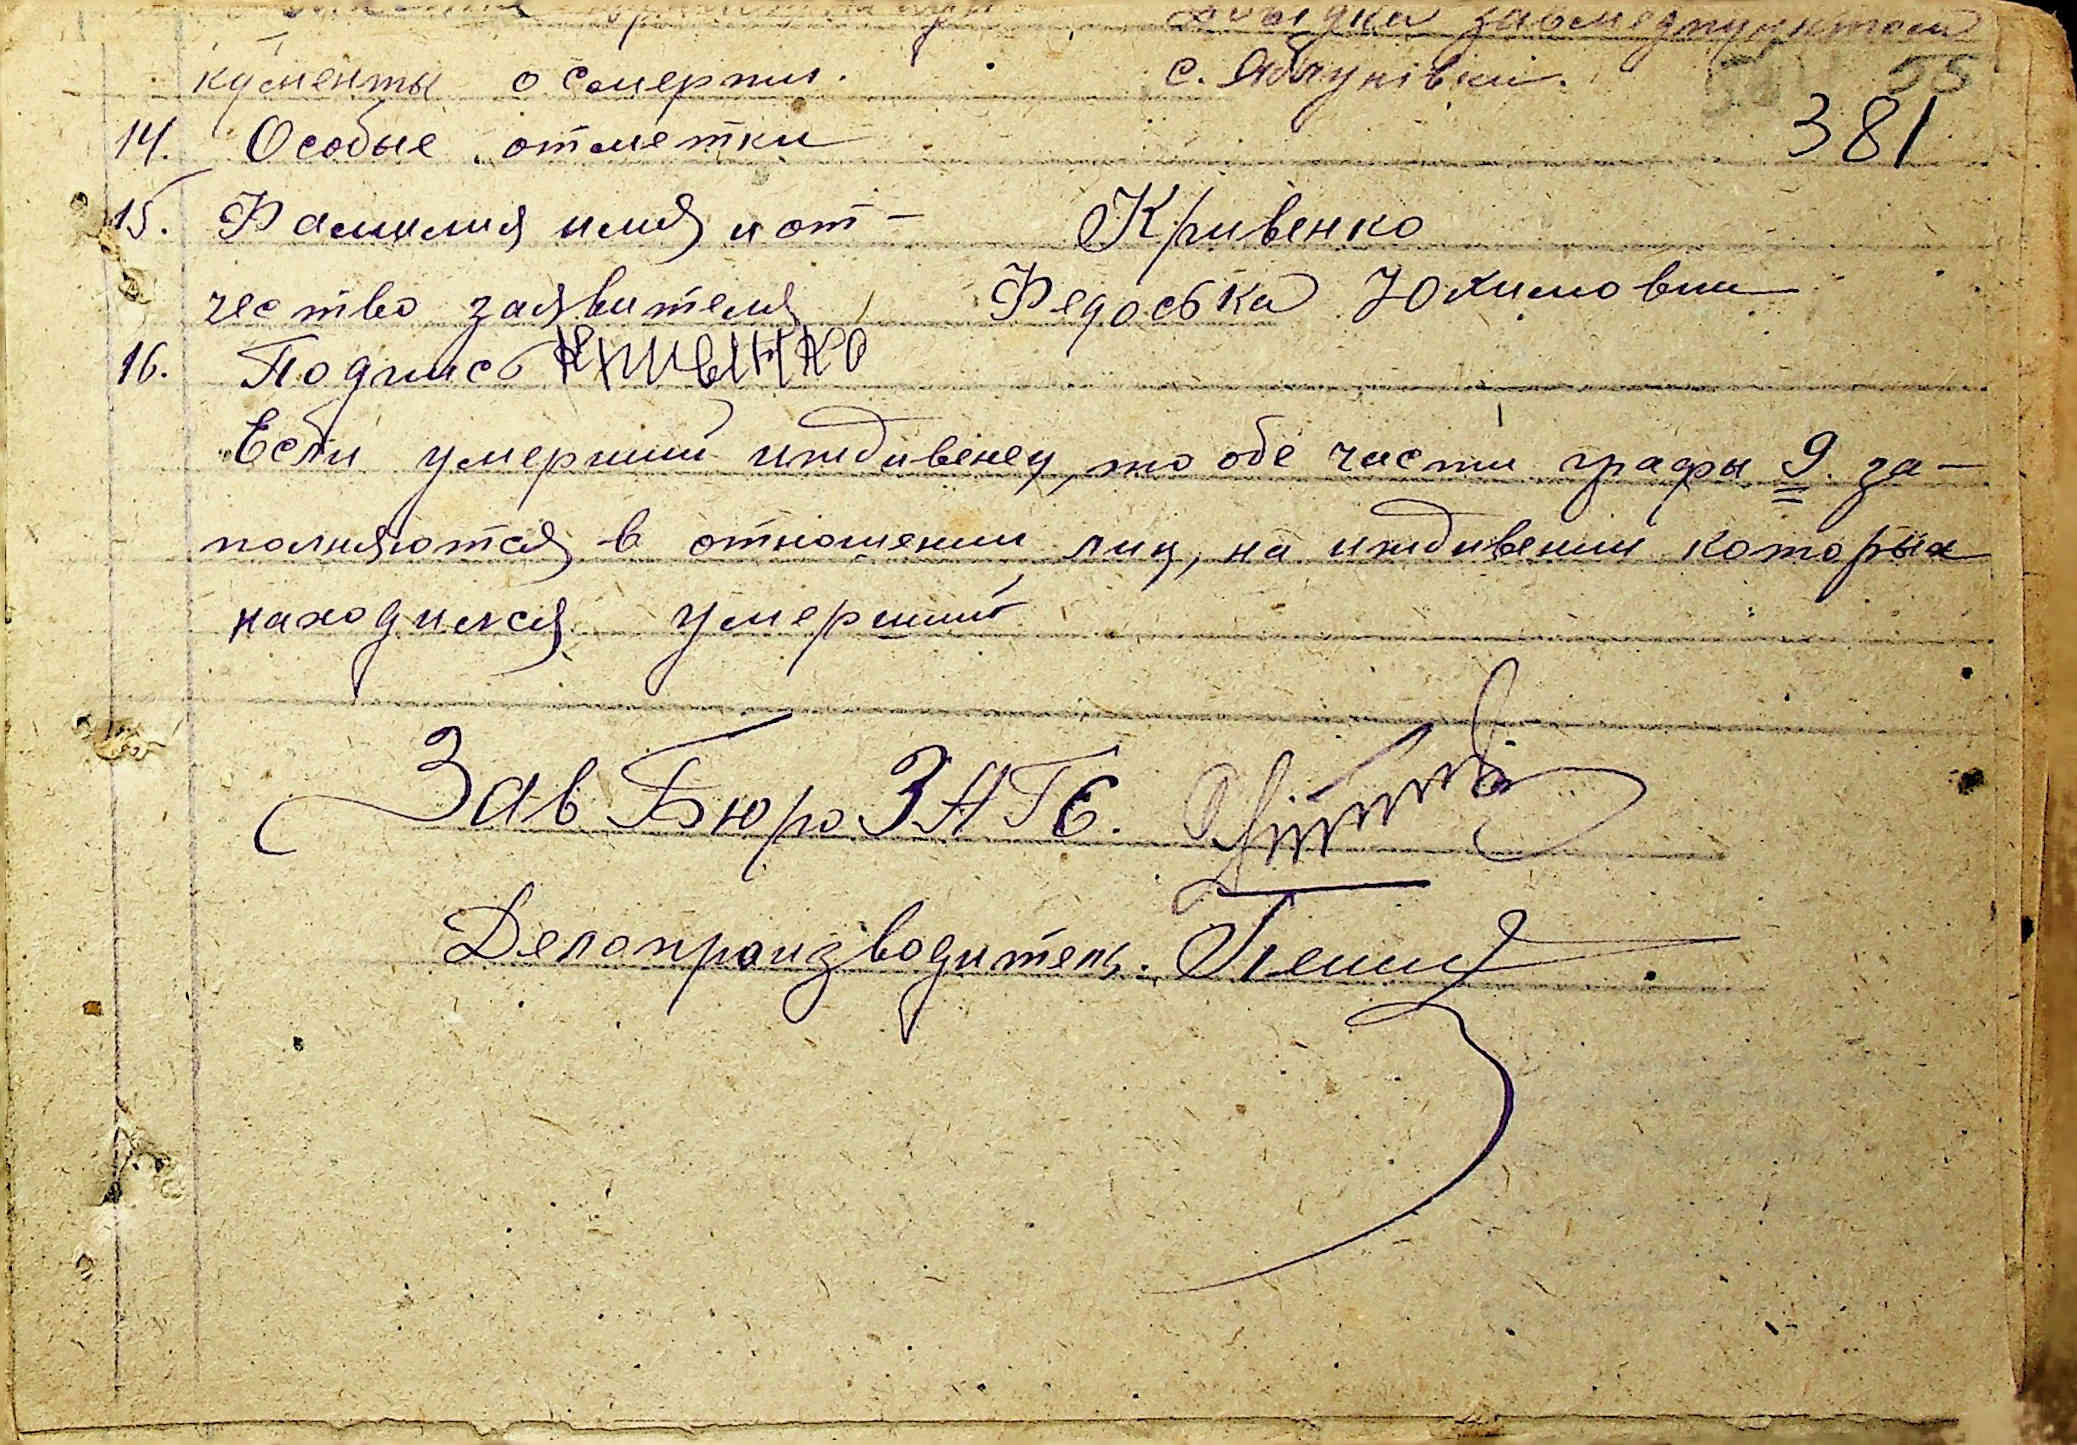 довідка завмедпунктом
кументы о смерти. с. Яблунівки.
55
381
14. Особые отметки
15. Фамилия имя и от- Кривенко
чество заявителя Федоська Юхимовни
16. Подпись Кривенко
Если умерший иждивенец, то обе части графы 9. за-
полняются в отношении лиц, на иждивении которых
находился умерший
Зав Бюро ЗАГС.
Делопроизводитель.